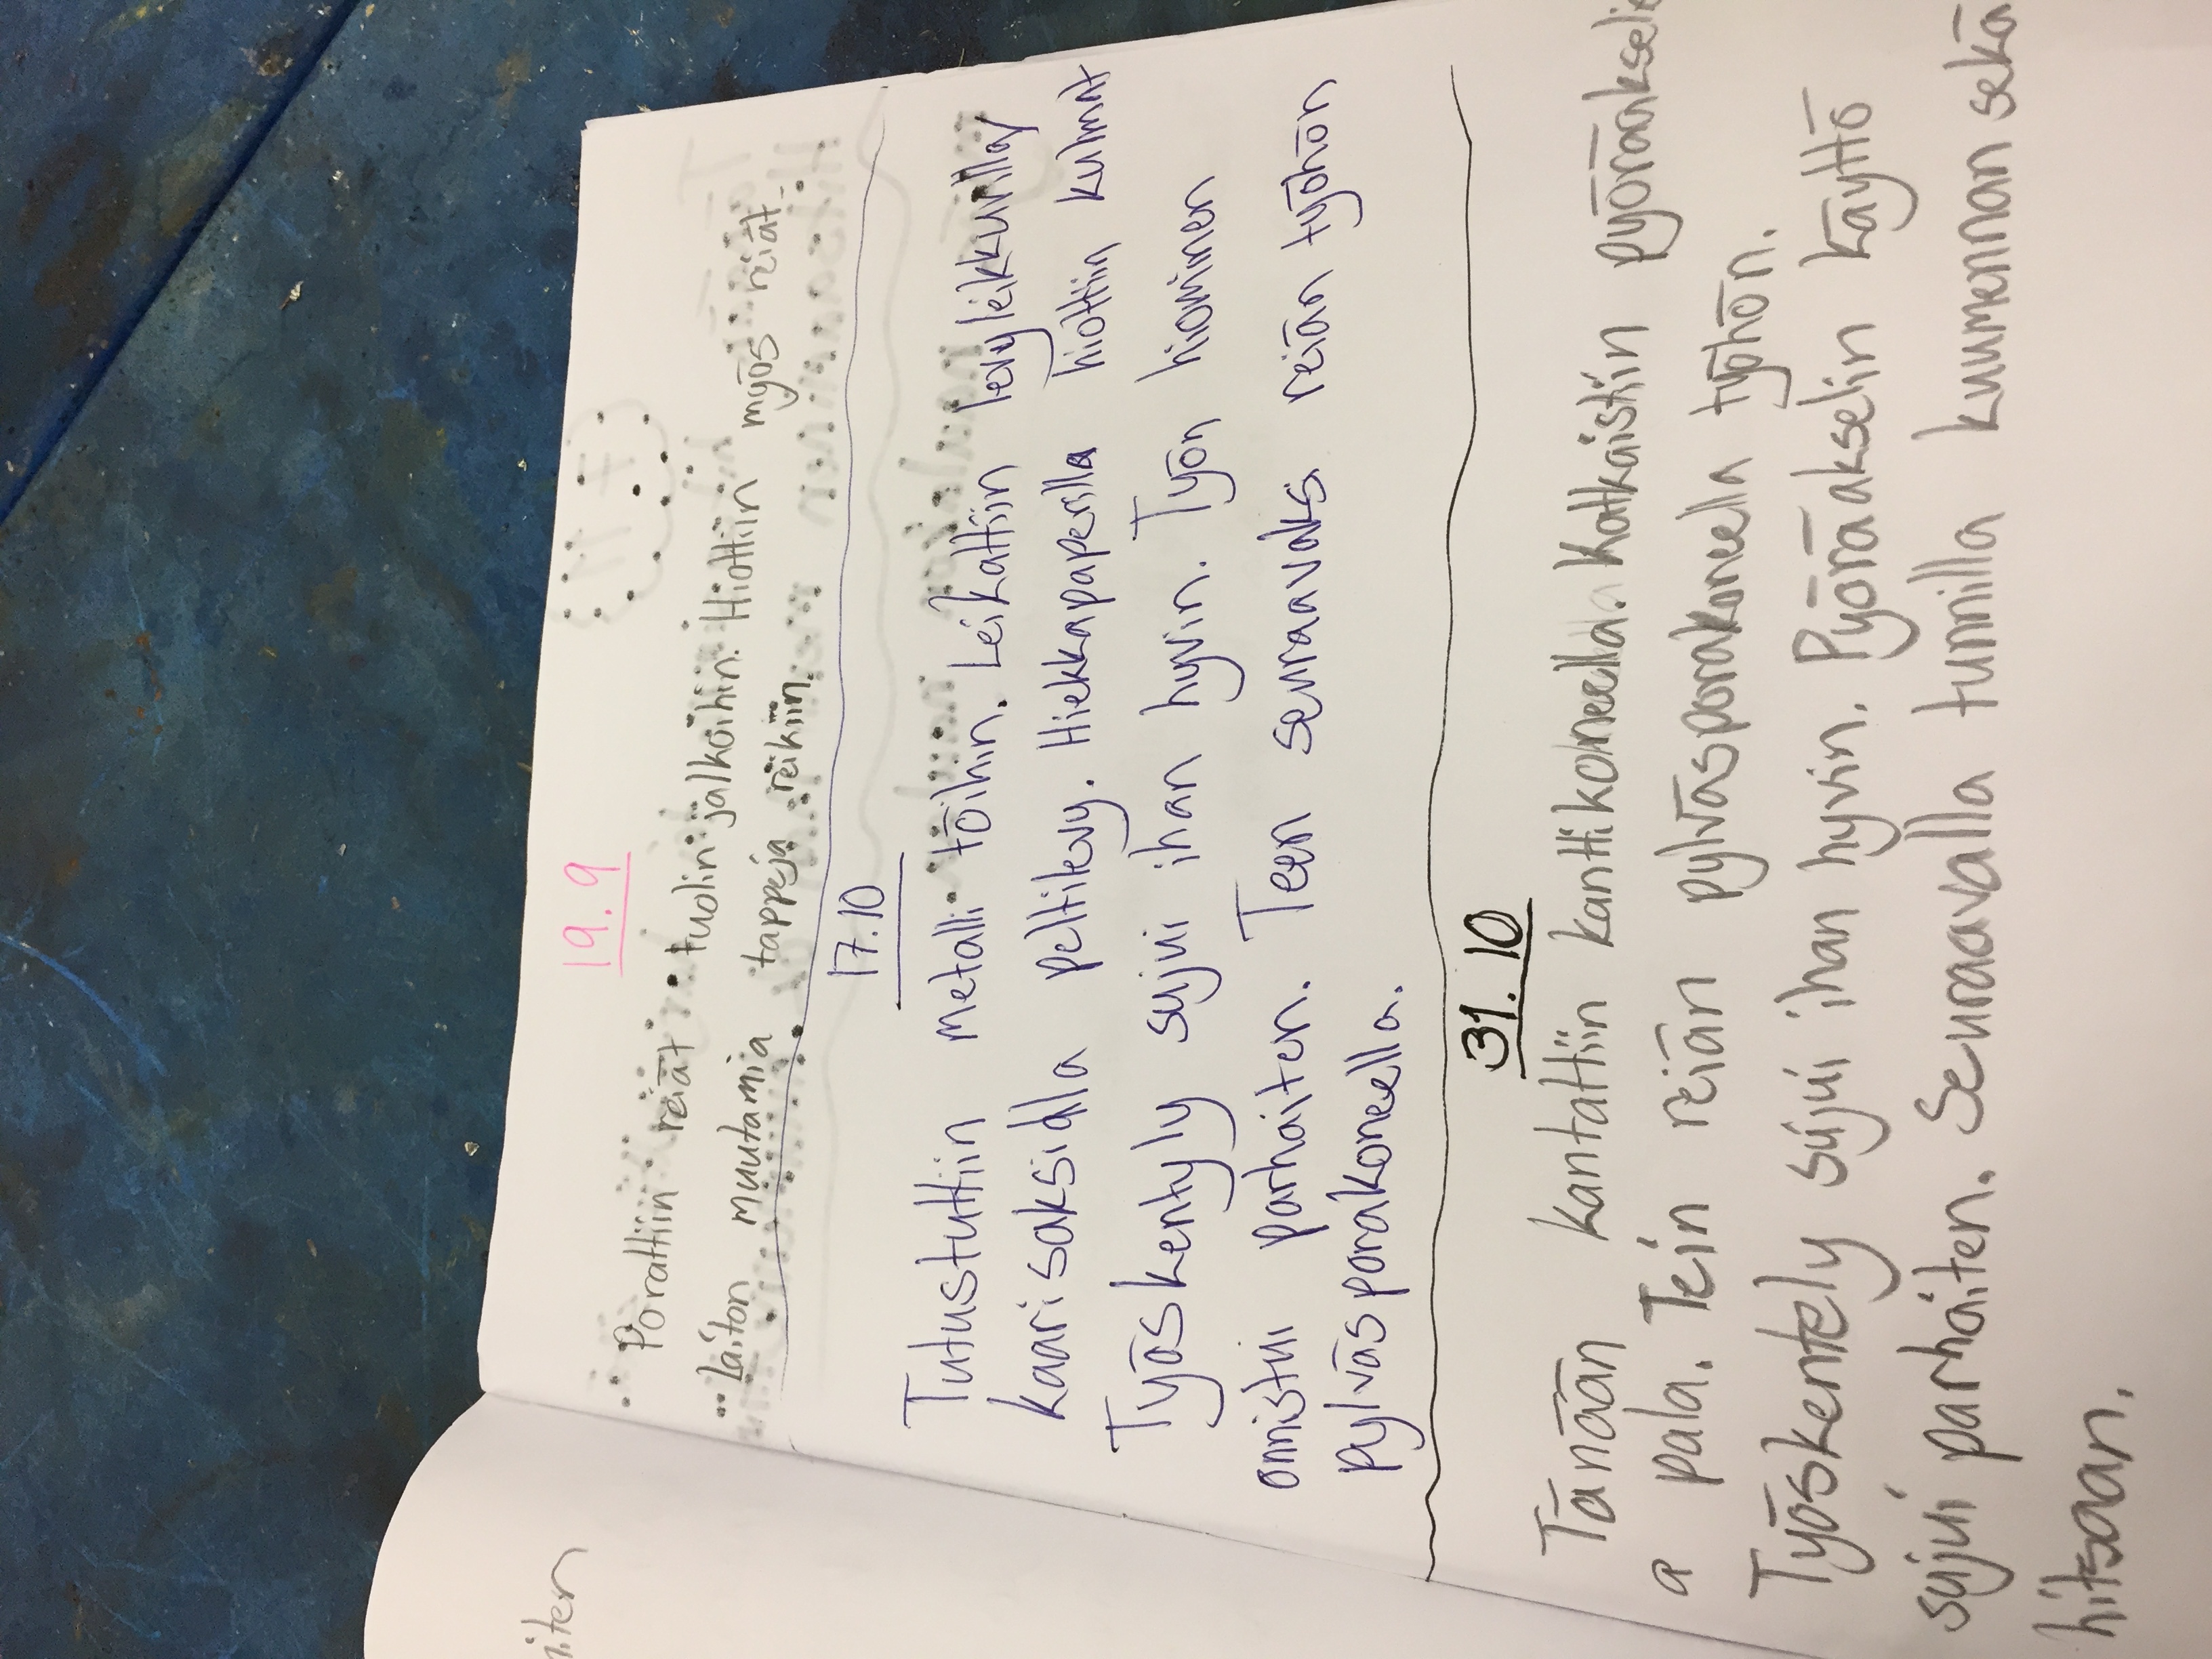 19.9
Porattiin reiät tuolin jalkoihin. Hiottiin myös reiät.
Laiton muutamia tappeja reikiin.
17.10
Tutustuttiin metalli töihin. Leikattiin levyleikkurilla/
kaarisaksidlla peltilevy. Hiekkapaperilla hiottiin kulmat
Työskentyly sujui ihan hyvin. Työn hiominen
onnistui parhaiten. Teen seuraavaks reiän työhön
pylväsporakoneella.
31.10
Tänään kantattiin kanttikoneella. Katkaistiin pyöröakseli
a pala. Tein reiän pylväsporakoneella työhön.
Työskentely sujui ihan hyvin. Pyöröakselin käyttö
sujui parhaiten. Seuraavalla tunnilla kuumennan sekä
hitsaan.
aiten